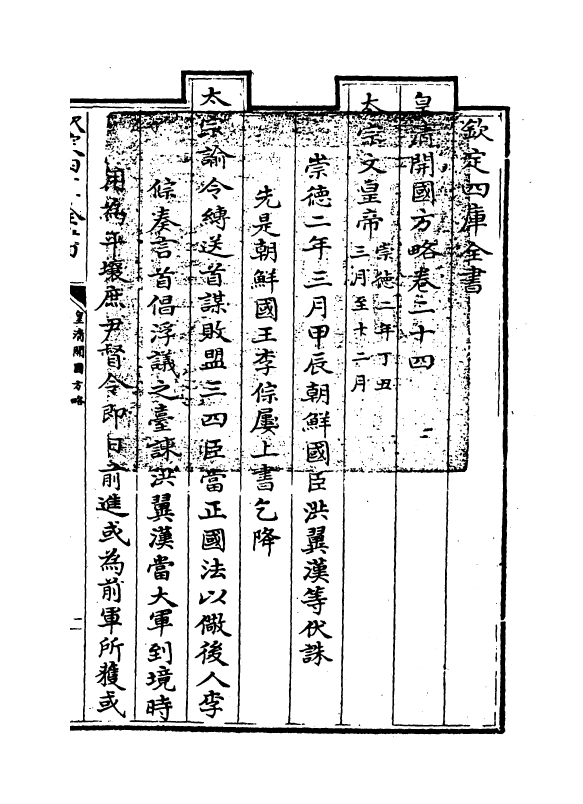 欽定四庫全書
皇清開國方略卷二十四
太宗文皇帝崇德二年丁丑
三月至十二月
崇德二年三月甲辰朝鮮國臣洪翼漢等伏誅
先是朝鮮國王李倧屢上書乞降
太宗諭令縛送首謀敗盟三四臣當正國法以儆後人李
倧奏言首倡浮議之臺諫洪翼漢當大軍到境時
用為平壤庶尹督令即日前進或為前軍所獲或
皇清開國方略